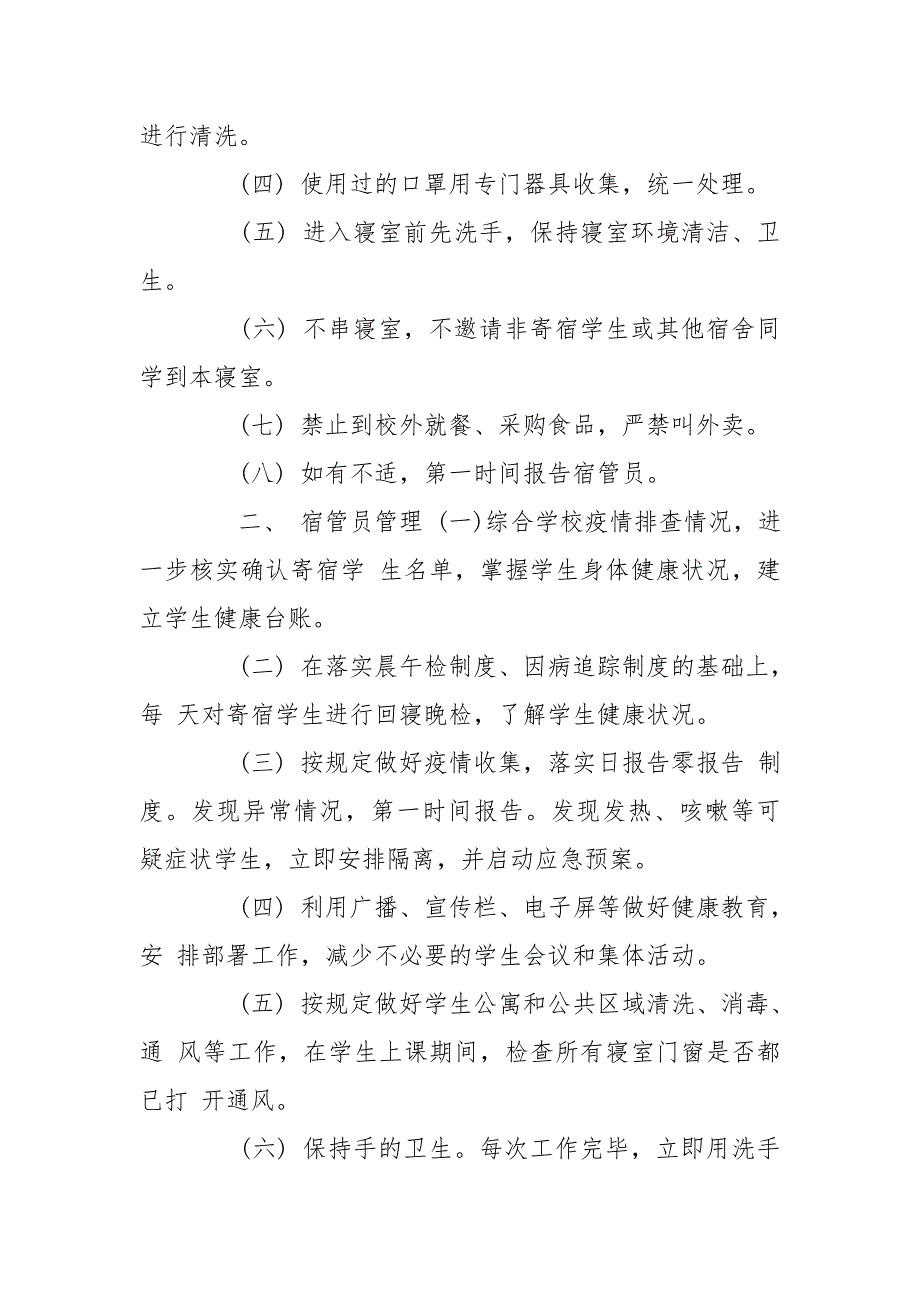 进行清洗。
(四) 使用过的口罩用专门器具收集，统一处理。
(五) 进入寝室前先洗手，保持寝室环境清洁、卫
生。
(六) 不串寝室，不邀请非寄宿学生或其他宿舍同
学到本寝室。
(七) 禁止到校外就餐、采购食品，严禁叫外卖。
(八) 如有不适，第一时间报告宿管员。
二、 宿管员管理 (一)综合学校疫情排查情况，进
一步核实确认寄宿学 生名单，掌握学生身体健康状况，建
立学生健康台账。
(二) 在落实晨午检制度、因病追踪制度的基础上，
每 天对寄宿学生进行回寝晚检，了解学生健康状况。
(三) 按规定做好疫情收集，落实日报告零报告 制
度。发现异常情况，第一时间报告。发现发热、咳嗽等可
疑症状学生，立即安排隔离，并启动应急预案。
(四) 利用广播、宣传栏、电子屏等做好健康教育，
安 排部署工作，减少不必要的学生会议和集体活动。
(五) 按规定做好学生公寓和公共区域清洗、消毒、
通 风等工作，在学生上课期间，检查所有寝室门窗是否都
已打 开通风。
(六) 保持手的卫生。每次工作完毕，立即用洗手